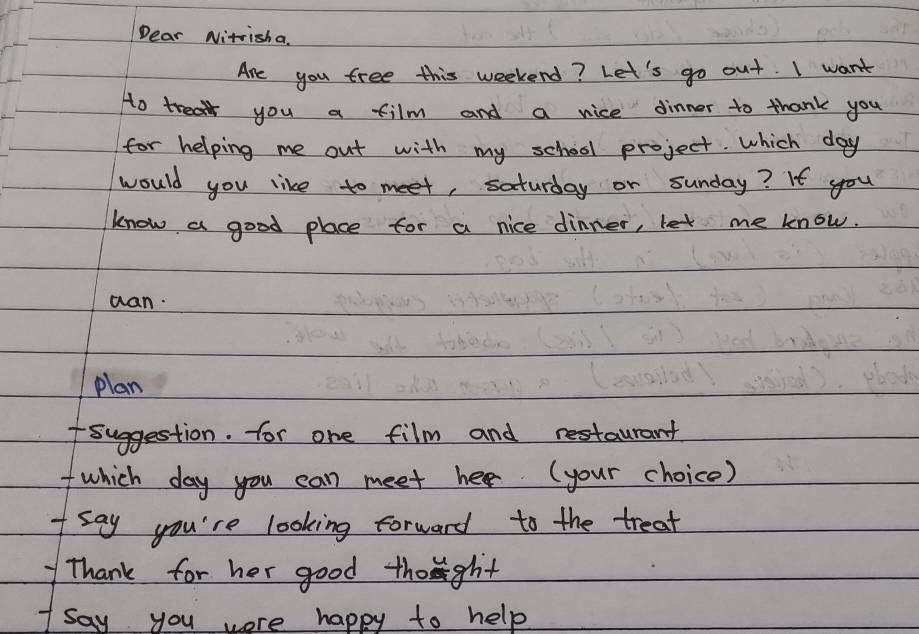 Dear Nitrisha.
Are you free this weekend? Let's go out. I want
to treat you a film and a nice dinner to thank you
for helping me out with my school project. Which day
would you like to meet, saturday or sunday? If you
know a good place for a nice dinner, let me know.
aan.
Plan
-suggestion. for one film and restaurant
-which day you can meet her (your choice)
-say you're looking forward to the treat
-Thank for her good thought
-say you were happy to help